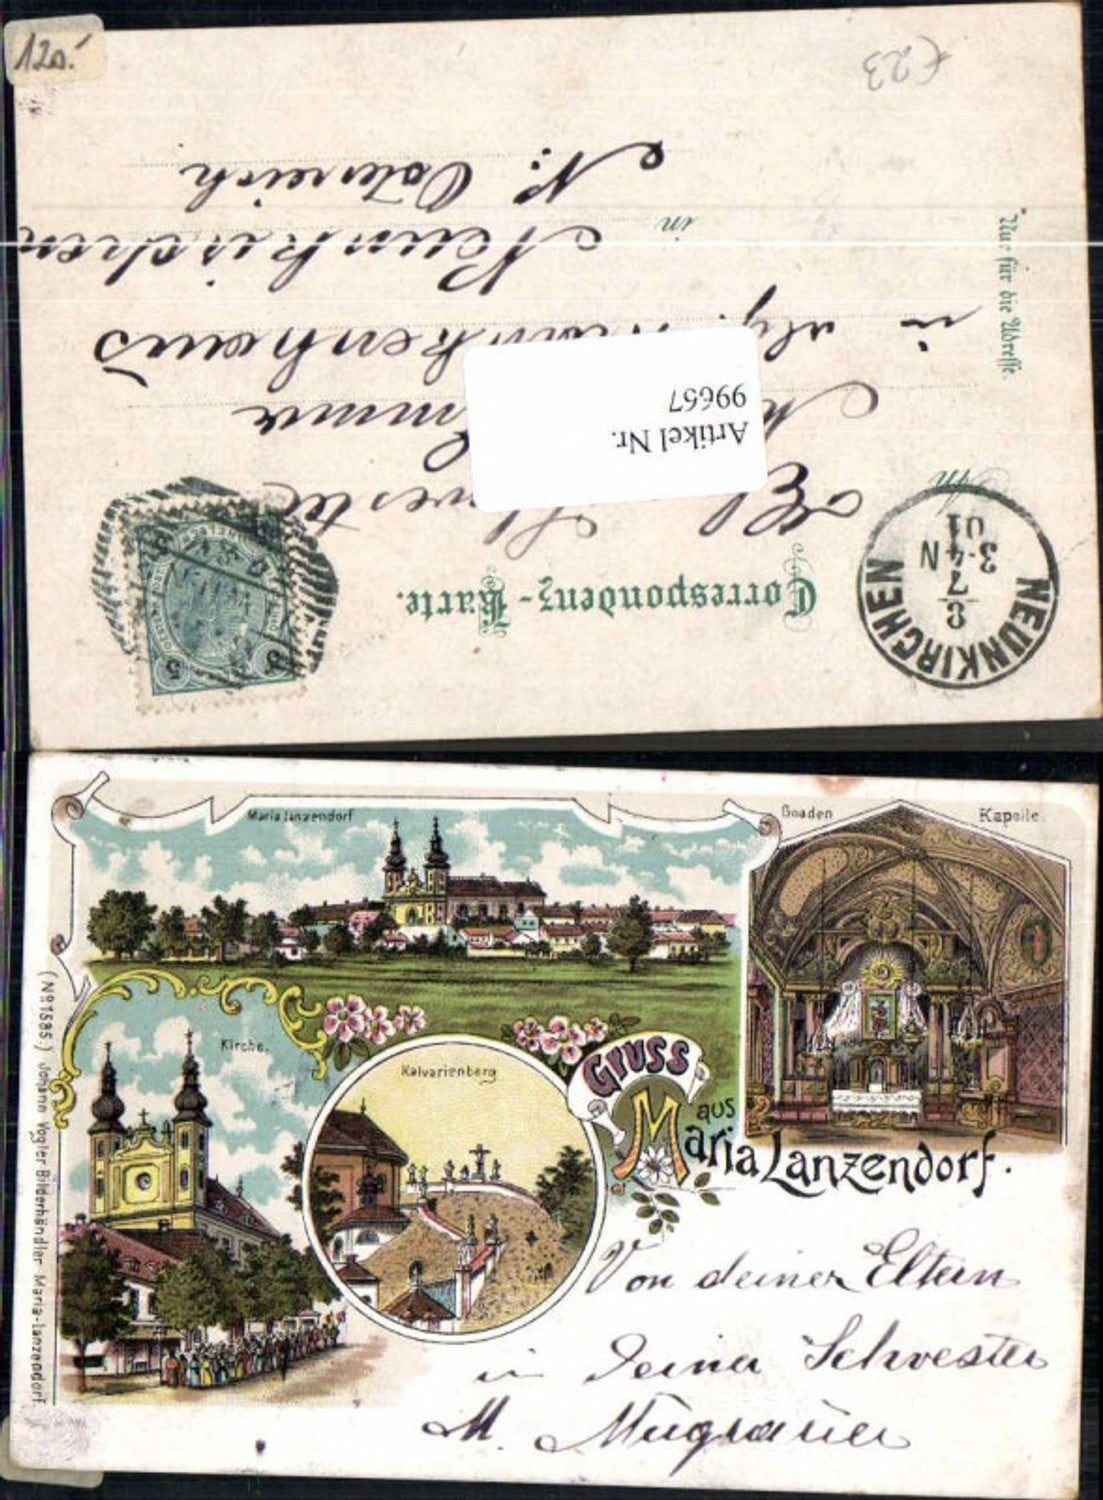 120.-
€23
Correspondenz-Karte.
NEUNKIRCHEN
8
7
3-4 N
01
5
5
An
Artikel Nr.
99657
in
Neunkirchen
N: Österreich
Nur für die Adresse.
Maria Lanzendorf
Gnaden Kapelle.
Kirche.
Kalvarienberg
Gruss
aus
Maria Lanzendorf.
(No 1585) Johann Vogler Bilderhändler Maria-Lanzendorf
Von deinen Eltern
in Deiner Schwester
M. Mugrauer